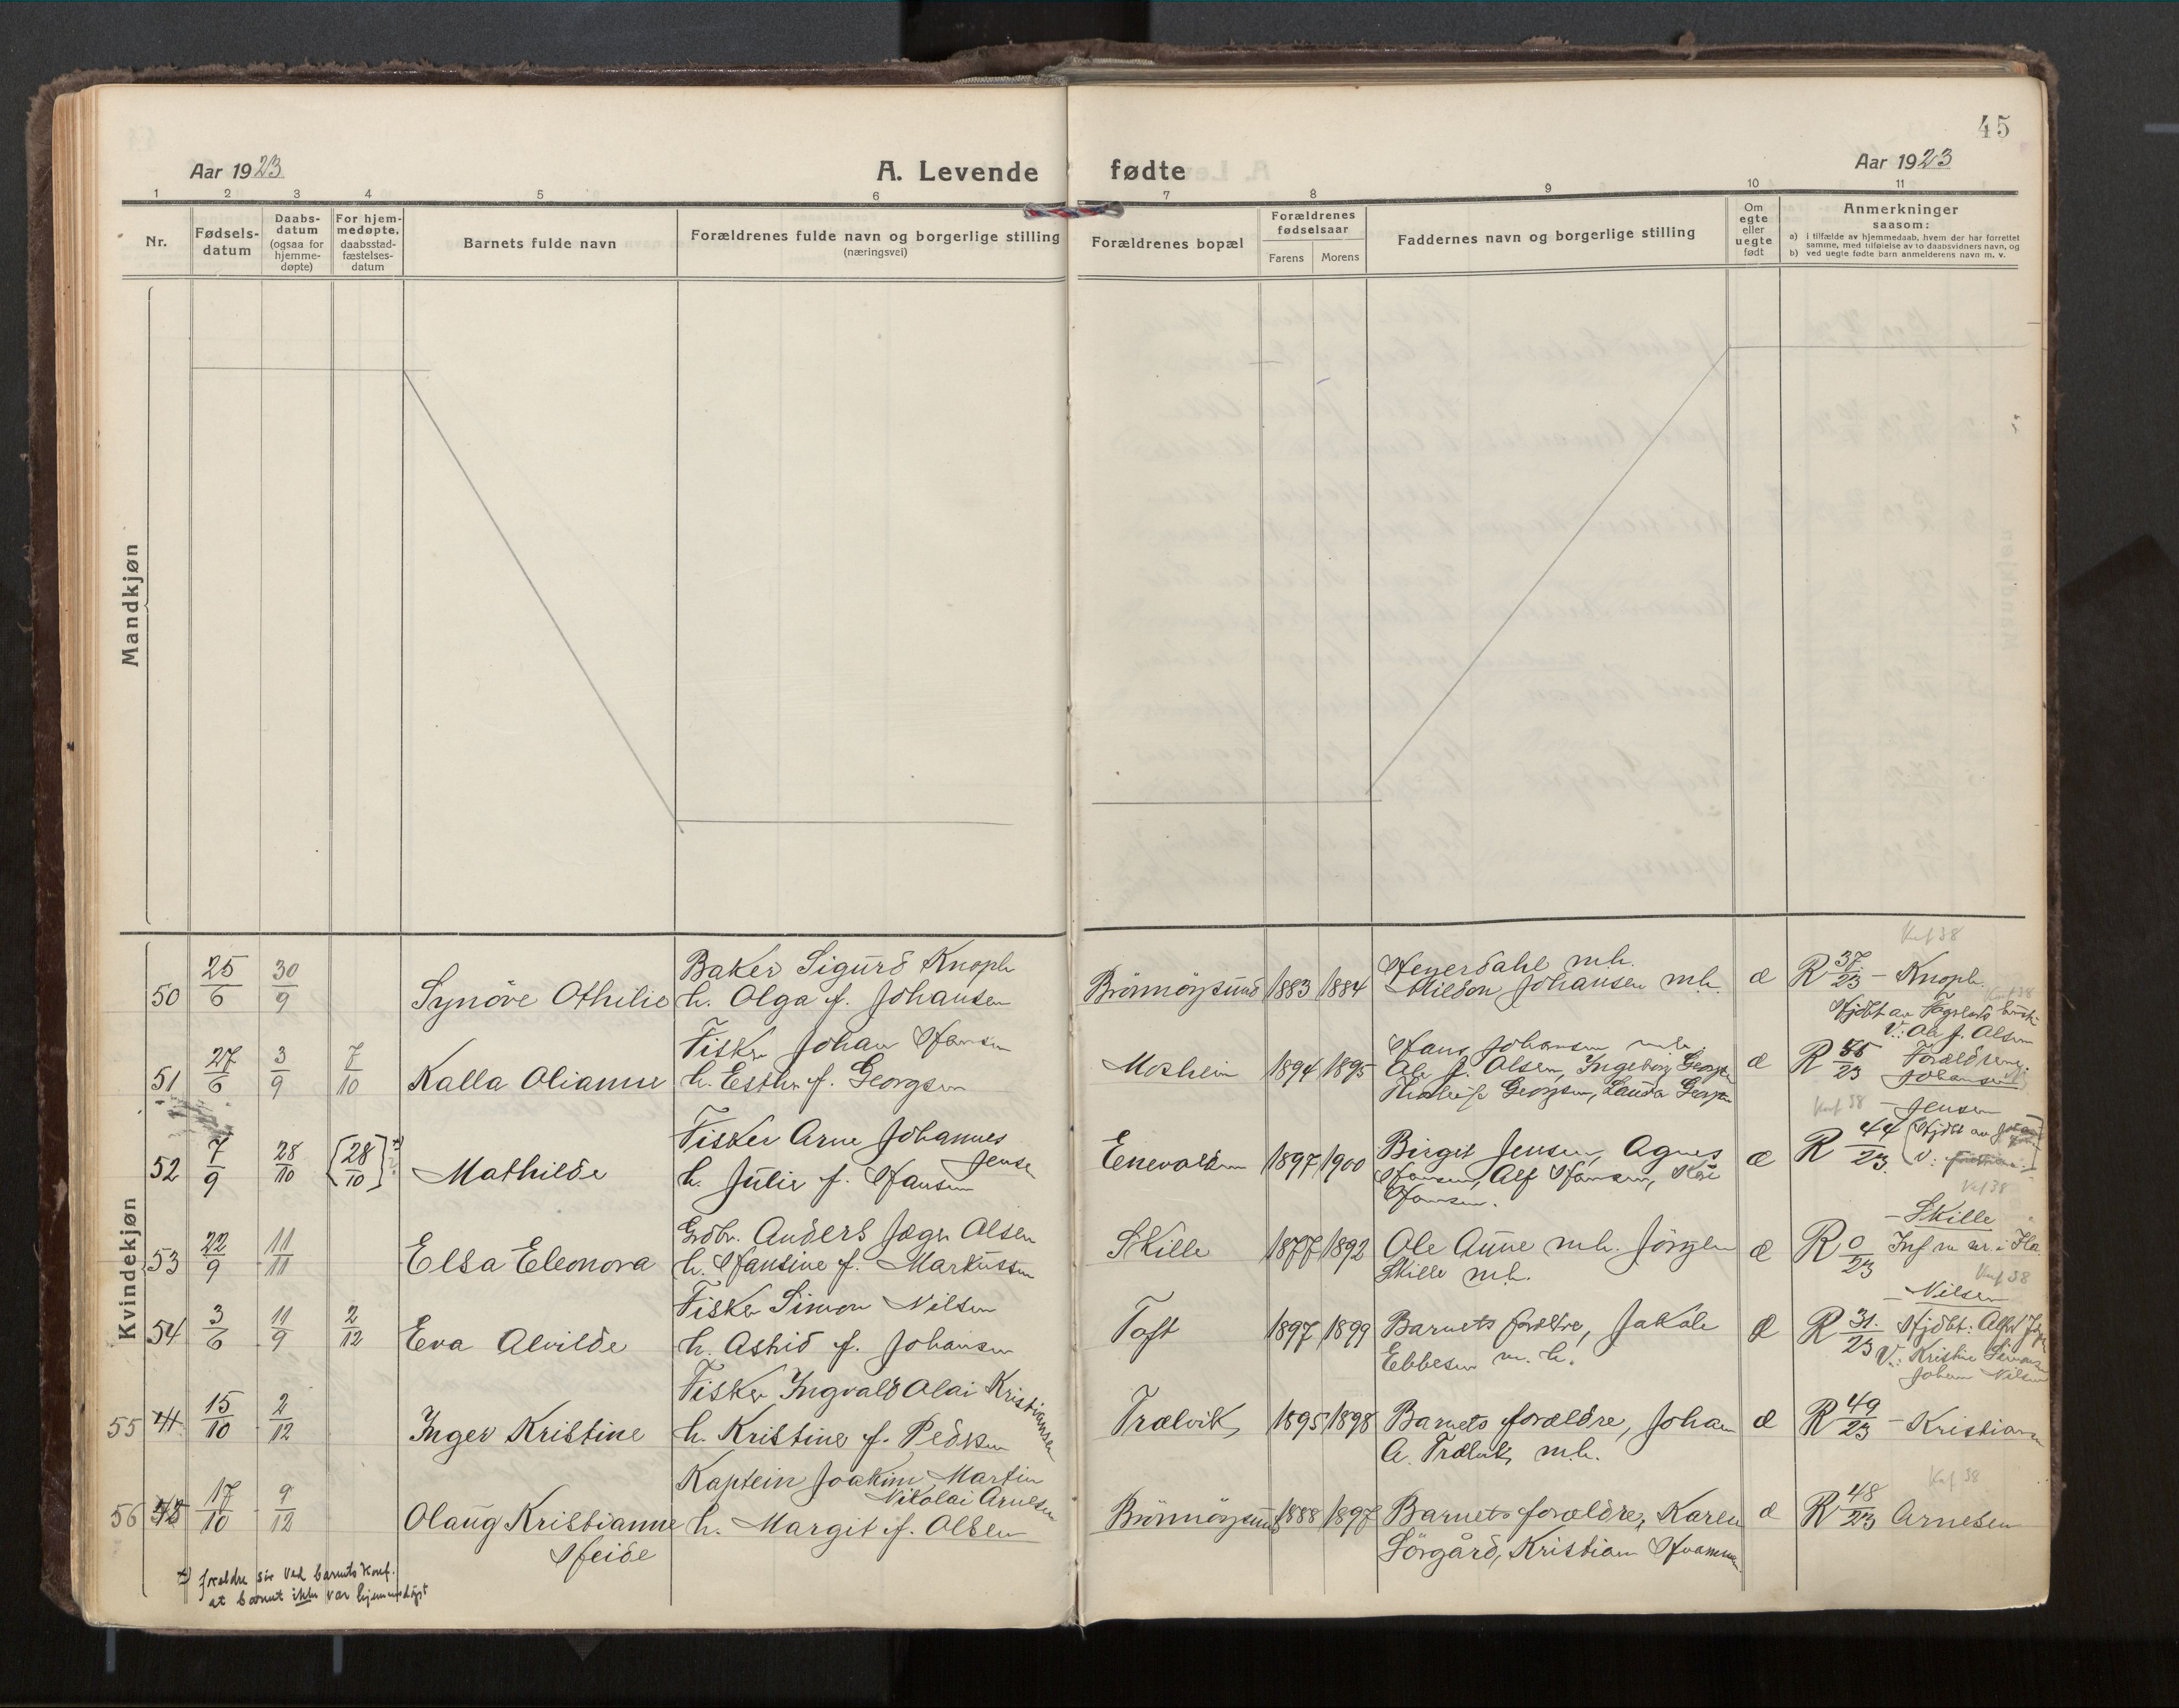 45
Aar 1923
A. Levende fødte
Aar 1923
1 2 3 4 5 6 7 8 9 10 11
Nr.
Fødsels-
datum
Daabs-
datum
(ogsaa for
hjemme-
døpte)
For hjem-
medøpte,
daabsstad-
fæstelses-
datum
Barnets fulde navn
Forældrenes fulde navn og borgerlige stilling
(næringsvei)
Forældrenes bopæl
Forældrenes
fødselsaar
Farens Morens
Faddernes navn og borgerlige stilling
Om
egte
eller
uegte
født
Anmerkninger
saasom:
a) i tilfælde av hjemmedaab, hvem der har forrettet
samme, med tilføielse av to daabsvidners navn, og
b) ved uegte fødte barn anmelderens navn m. v.
Mandkjøn
Kvindekjøn
50 25/6 30/9
Synöve Othilie
Baker Sigurd Knoph
h. Olga f. Johansen
Brönnöysund 1883 1884
Heyerdahl m.h.
Johansen m.h.
R 37/23 - Knoph
51 27/6 3/9 7/10
Kalla Olianne
Fisker Johan Hansen
h. Esther f. Georgsen
Moshein 1894 1895
Hans Johansen m.h.
Ole J. Olsen, Ingeborg Georgsen
Georgsen, Lauda Georgsen
V: Ole J. Olsen
R 55/23 Forældrene
Johansen
52 7/9 28/10 [28/10]
Mathilde
Fisker Arne Johannes
Jensen
h. Julie f. Hansen
Enevolden 1897 1900
Birgit Jensen, Agnes
Hansen, Alf Hansen, Kåre
Hansen.
- Jensen
R 44/23
53 22/9 11/11
Elsa Eleonora
Grdbr. Anders Jæger Olsen
h. Hansine f. Markussen
Skille 1877 1892
Ole Aune m.h. Jörgen
Skille m.h.
- Skille
R 0/23
54 3/6 11/9 2/12
Eva Alvilde
Fisker Simon Nilsen
h. Astrid f. Johansen
Toft 1897 1899
Barnets forældre, Jakob
Ebbesen m.h.
- Nilsen
R 31/23 Hjdbt:
V.: Kristine Simonsen
Johan Nilsen
55 41 15/10 2/12
Inger Kristine
Fisker Ingvald Olai Kristiansen
h. Kristine f. Pedersen
Trælvik 1895 1898
Barnets forældre, Johan
A. Trælvik m.h.
R 49/23 - Kristiansen
56 17/10 9/12
Olaug Kristianne
Heide
Kaptein Joakim Martin
Nikolai Arnesen
h. Margit f. Olsen
Brönnöysund 1888 1897
Barnets forældre, Karen
Sörgård, Kristian
R 48/23 Arnesen
Konf 38
forældre sir ved barnets konf.
at barnet ikke var hjemmedøpt